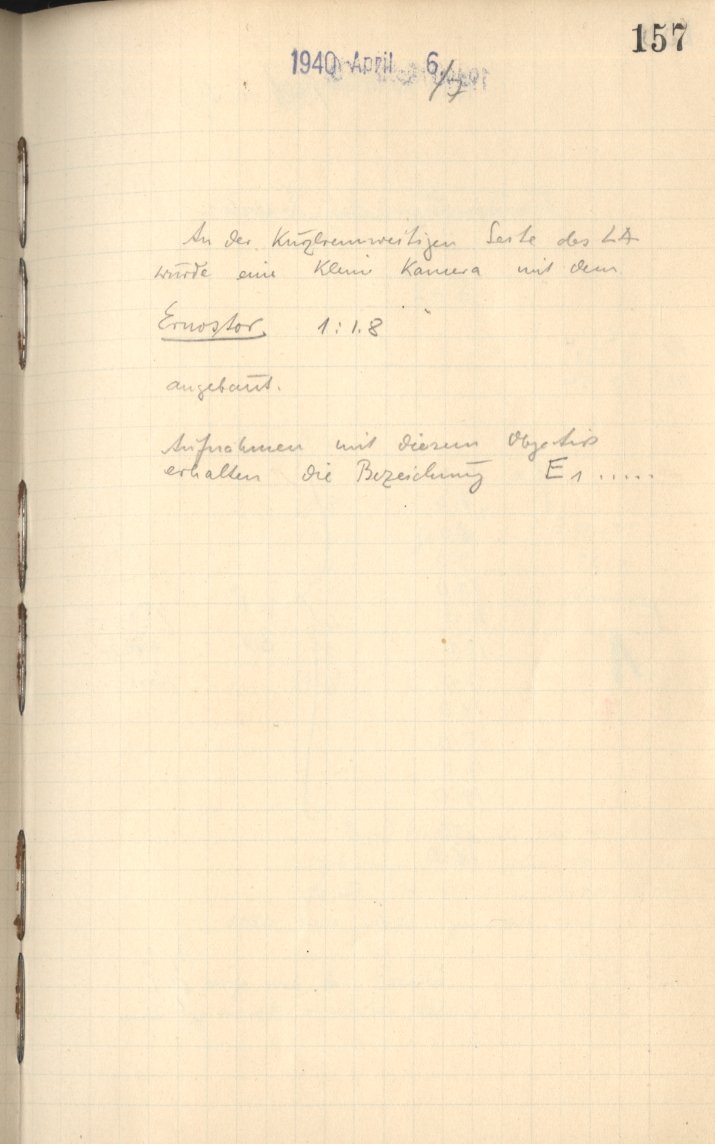 157
1940 April 6./7
An der kurzbrennweitigen Seite des LA
wurde eine kleine Kamera mit dem
Ernostar 1:1.8
angebaut.
Aufnahmen mit diesem Objektiv
erhalten die Bezeichnung E1.....